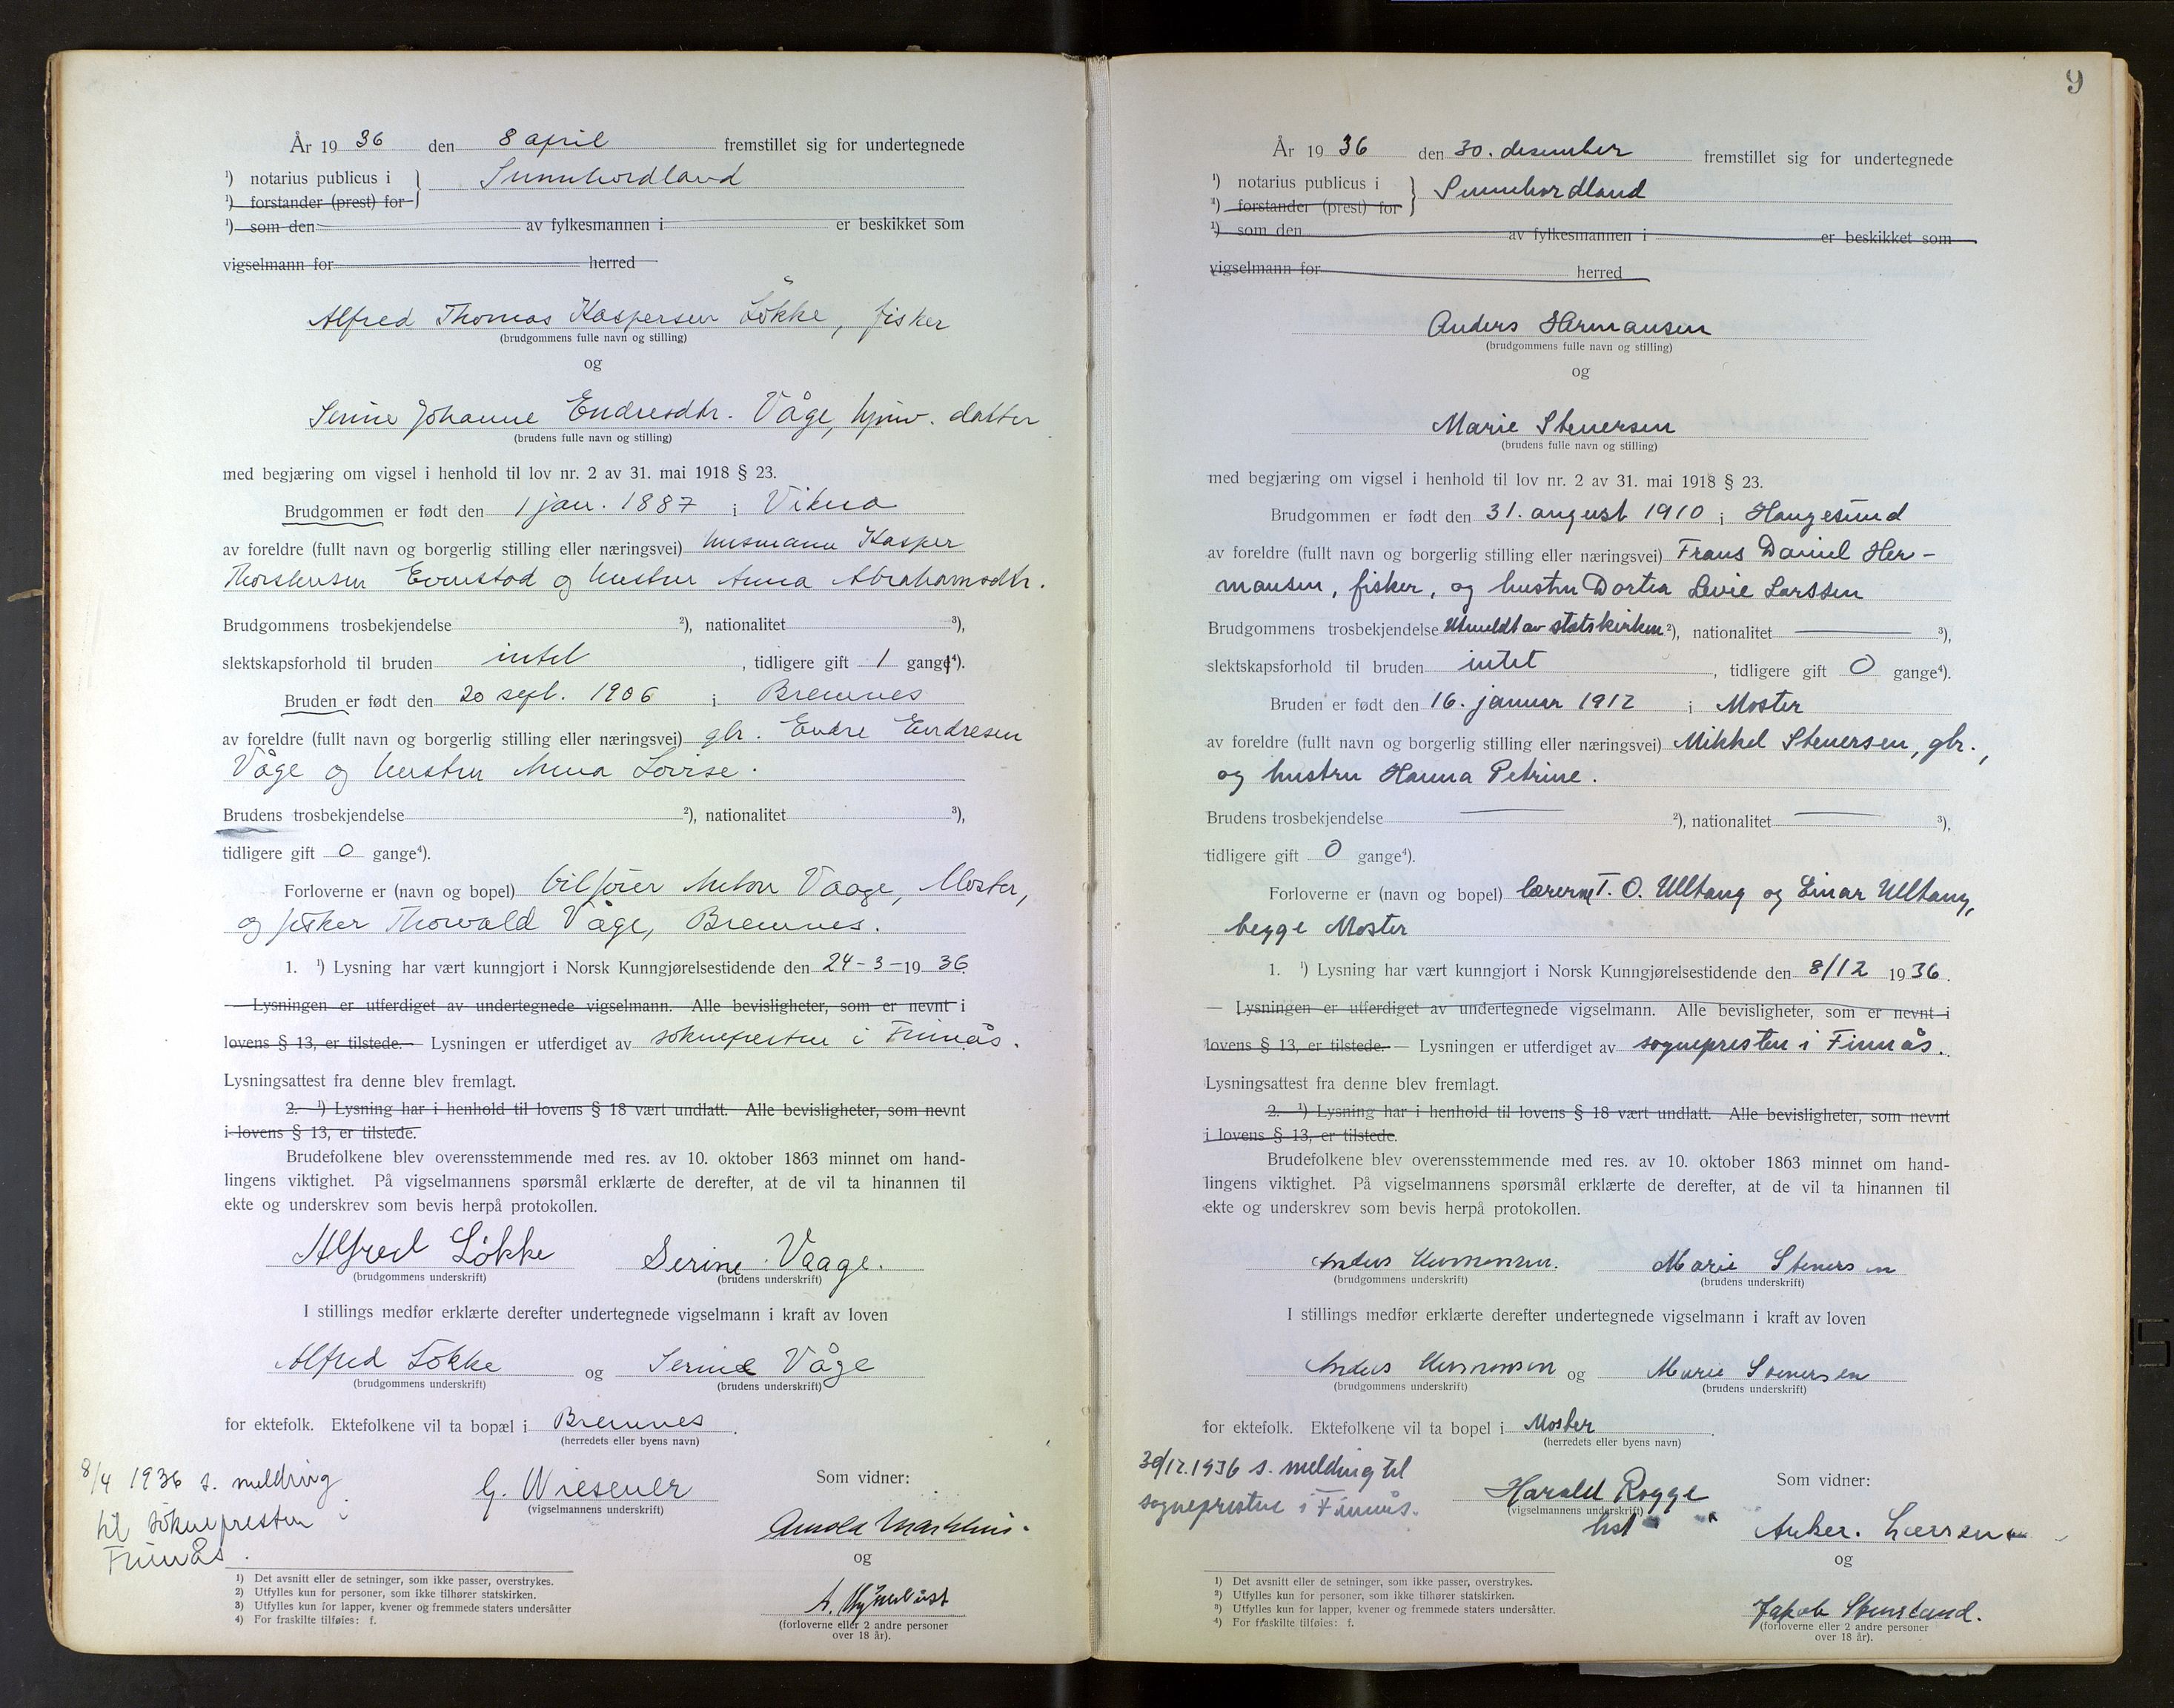 År 19 36 den 8 april fremstillet sig for undertegnede
¹) notarius publicus i } Sunnhordland
¹) forstander (prest) for
¹) som den av fylkesmannen i er beskikket som
vigselmann for herred
Alfred Thomas Kaspersen Lökke, fisker
(brudgommens fulle navn og stilling)
og
Serine Johanne Endresdtr. Våge, hjmv. datter
(brudens fulle navn og stilling)
med begjæring om vigsel i henhold til lov nr. 2 av 31. mai 1918 § 23.
Brudgommen er født den 1 jan. 1887 i Vikna
av foreldre (fullt navn og borgerlig stilling eller næringsvei) husmann Kasper
Thorstensen Evenstad og hustru Anna Abrahamsdtr.
Brudgommens trosbekjendelse ²), nationalitet ³),
slektskapsforhold til bruden intet, tidligere gift 1 gang⁴).
Bruden er født den 20 sept. 1906 i Bremnes
av foreldre (fullt navn og borgerlig stilling eller næringsvei) gbr. Endre Endresen
Våge og hustru Anna Lovise.
Brudens trosbekjendelse ²), nationalitet ³),
tidligere gift 0 gange⁴).
Forloverne er (navn og bopel) bilfører Anton Vaage, Moster,
og fisker Thorvald Våge, Bremnes.
1. ¹) Lysning har vært kunngjort i Norsk Kunngjørelsestidende den 24-3-19 36
— Lysningen er utferdiget av undertegnede vigselmann. Alle bevisligheter, som er nevnt i
lovens § 13, er tilstede. — Lysningen er utferdiget av soknepresten i Finnås.
Lysningsattest fra denne blev fremlagt.
2. ¹) Lysning har i henhold til lovens § 18 vært undlatt. Alle bevisligheter, som nevnt
i lovens § 13, er tilstede.
Brudefolkene blev overensstemmende med res. av 10. oktober 1863 minnet om hand-
lingens viktighet. På vigselmannens spørsmål erklærte de derefter, at de vil ta hinannen til
ekte og underskrev som bevis herpå protokollen.
Alfred Lökke Serine Vaage.
(brudgommens underskrift) (brudens underskrift)
I stillings medfør erklærte derefter undertegnede vigselmann i kraft av loven
Alfred Lökke og Serine Våge
(brudgommens underskrift) (brudens underskrift)
for ektefolk. Ektefolkene vil ta bopæl i Bremnes.
(herredets eller byens navn)
8/4 1936 s. melding
til soknepresten i
Finnås.
G. Wiesener
(vigselmannens underskrift)
Som vidner:
Arnold
og
(forloverne eller 2 andre personer
over 18 år).
1) Det avsnitt eller de setninger, som ikke passer, overstrykes.
2) Utfylles kun for personer, som ikke tilhører statskirken.
3) Utfylles kun for lapper, kvener og fremmede staters undersåtter
4) For fraskilte tilføies: f.
9
År 19 36 den 30. desember fremstillet sig for undertegnede
¹) notarius publicus i } Sunnhordland
¹) forstander (prest) for
¹) som den av fylkesmannen i er beskikket som
vigselmann for herred
Anders Hermansen
(brudgommens fulle navn og stilling)
og
Marie Stenersen
(brudens fulle navn og stilling)
med begjæring om vigsel i henhold til lov nr. 2 av 31. mai 1918 § 23.
Brudgommen er født den 31. august 1910 i Haugesund
av foreldre (fullt navn og borgerlig stilling eller næringsvei) Frans Daniel Her-
mansen, fisker, og hustru Dortea Levie Larssen
Brudgommens trosbekjendelse Utmeldt av statskirken ²), nationalitet — ³),
slektskapsforhold til bruden intet, tidligere gift 0 gange⁴).
Bruden er født den 16. januar 1912 i Moster
av foreldre (fullt navn og borgerlig stilling eller næringsvei) Mikkel Stenersen, gbr.,
og hustru Hanna Petrine.
Brudens trosbekjendelse — ²), nationalitet — ³),
tidligere gift 0 gange⁴).
Forloverne er (navn og bopel) lærerne T. O. Ulltang og Einar Ulltang,
begge Moster
1. ¹) Lysning har vært kunngjort i Norsk Kunngjørelsestidende den 8/12 19 36.
— Lysningen er utferdiget av undertegnede vigselmann. Alle bevisligheter, som er nevnt i
lovens § 13, er tilstede. — Lysningen er utferdiget av sognepresten i Finnås.
Lysningsattest fra denne blev fremlagt.
2. ¹) Lysning har i henhold til lovens § 18 vært undlatt. Alle bevisligheter, som nevnt
i lovens § 13, er tilstede.
Brudefolkene blev overensstemmende med res. av 10. oktober 1863 minnet om hand-
lingens viktighet. På vigselmannens spørsmål erklærte de derefter, at de vil ta hinannen til
ekte og underskrev som bevis herpå protokollen.
Anders Hermansen. Marie Stenersen
(brudgommens underskrift) (brudens underskrift)
I stillings medfør erklærte derefter undertegnede vigselmann i kraft av loven
Anders Hermansen og Marie Stenersen
(brudgommens underskrift) (brudens underskrift)
for ektefolk. Ektefolkene vil ta bopel i Moster.
(herredets eller byens navn)
30/12.1936 s. melding til
sognepresten i Finnås.
Harald Rogge
(vigselmannens underskrift)
Som vidner:
Anker. Larsen
og
Jakob
(forloverne eller 2 andre personer
over 18 år).
1) Det avsnitt eller de setninger, som ikke passer, overstrykes.
2) Utfylles kun for personer, som ikke tilhører statskirken.
3) Utfylles kun for lapper, kvener og fremmede staters undersåtter.
4) For fraskilte tilføies: f.